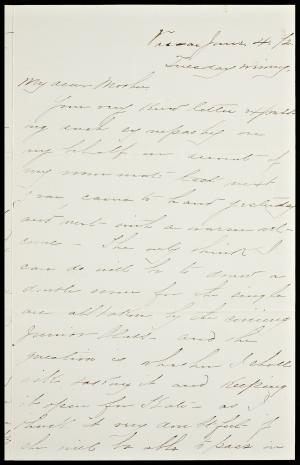 Vassar June 4. /72
Tuesday evening.
My dear Mother
Your very kind letter express-
ing such sympathy in
my behalf on account of
my room mate last next
year, came to hand yesterday
and met with a warm wel-
come - The only thing I
can do will be to draw a
double room for the single
are all taken by the coming
Junior Class - and the
question is whether I shall
risk taking it and keeping
it open for Kate - as I
think it very doubtful if
she will be able to pass in